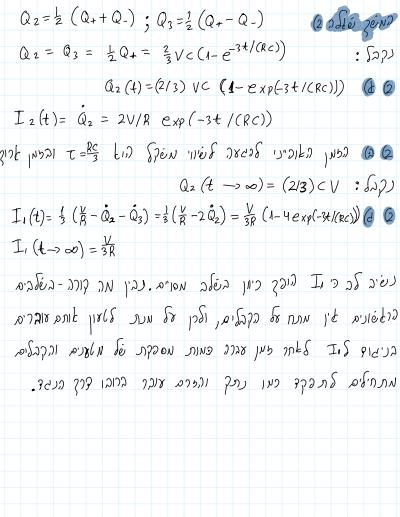 המשך שאלה 2) Q₂=½ (Q₊+Q₋) ; Q₃=½(Q₊-Q₋)
נקבל: Q₂ = Q₃ = ½Q₊ = ⅔VC(1-e^(-3t/(RC)))
2 א Q₂(t)=(2/3) VC (1-exp(-3t/(RC)))
I₂(t)= Q̇₂ = 2V/R exp(-3t/(RC))
2 ב הזמן האופייני להגעה לשיווי משקל הוא τ=RC/3 ובזמן ארוך
נקבל: Q₂(t→∞)=(2/3)CV
2 ג I₁(t)=⅓(V/R-Q̇₂-Q̇₃)=⅓(V/R-2Q̇₂)=V/3R(1-4exp(-3t/(RC)))
I₁(t→∞)=V/3R
נשים לב כי I₁ הופך כיוון בשלב מסוים. נבין מה קורה - בשלבים
הראשונים אין מתח על הקבלים, ולכן על מנת לטעון אותם עוברים
בניגוד ל I₁ לאחר זמן עברה כמות מספקת של מטענים והקבלים
מתחילים לתפקד כמו נתק והזרם עובר ברובו דרך הנגד.